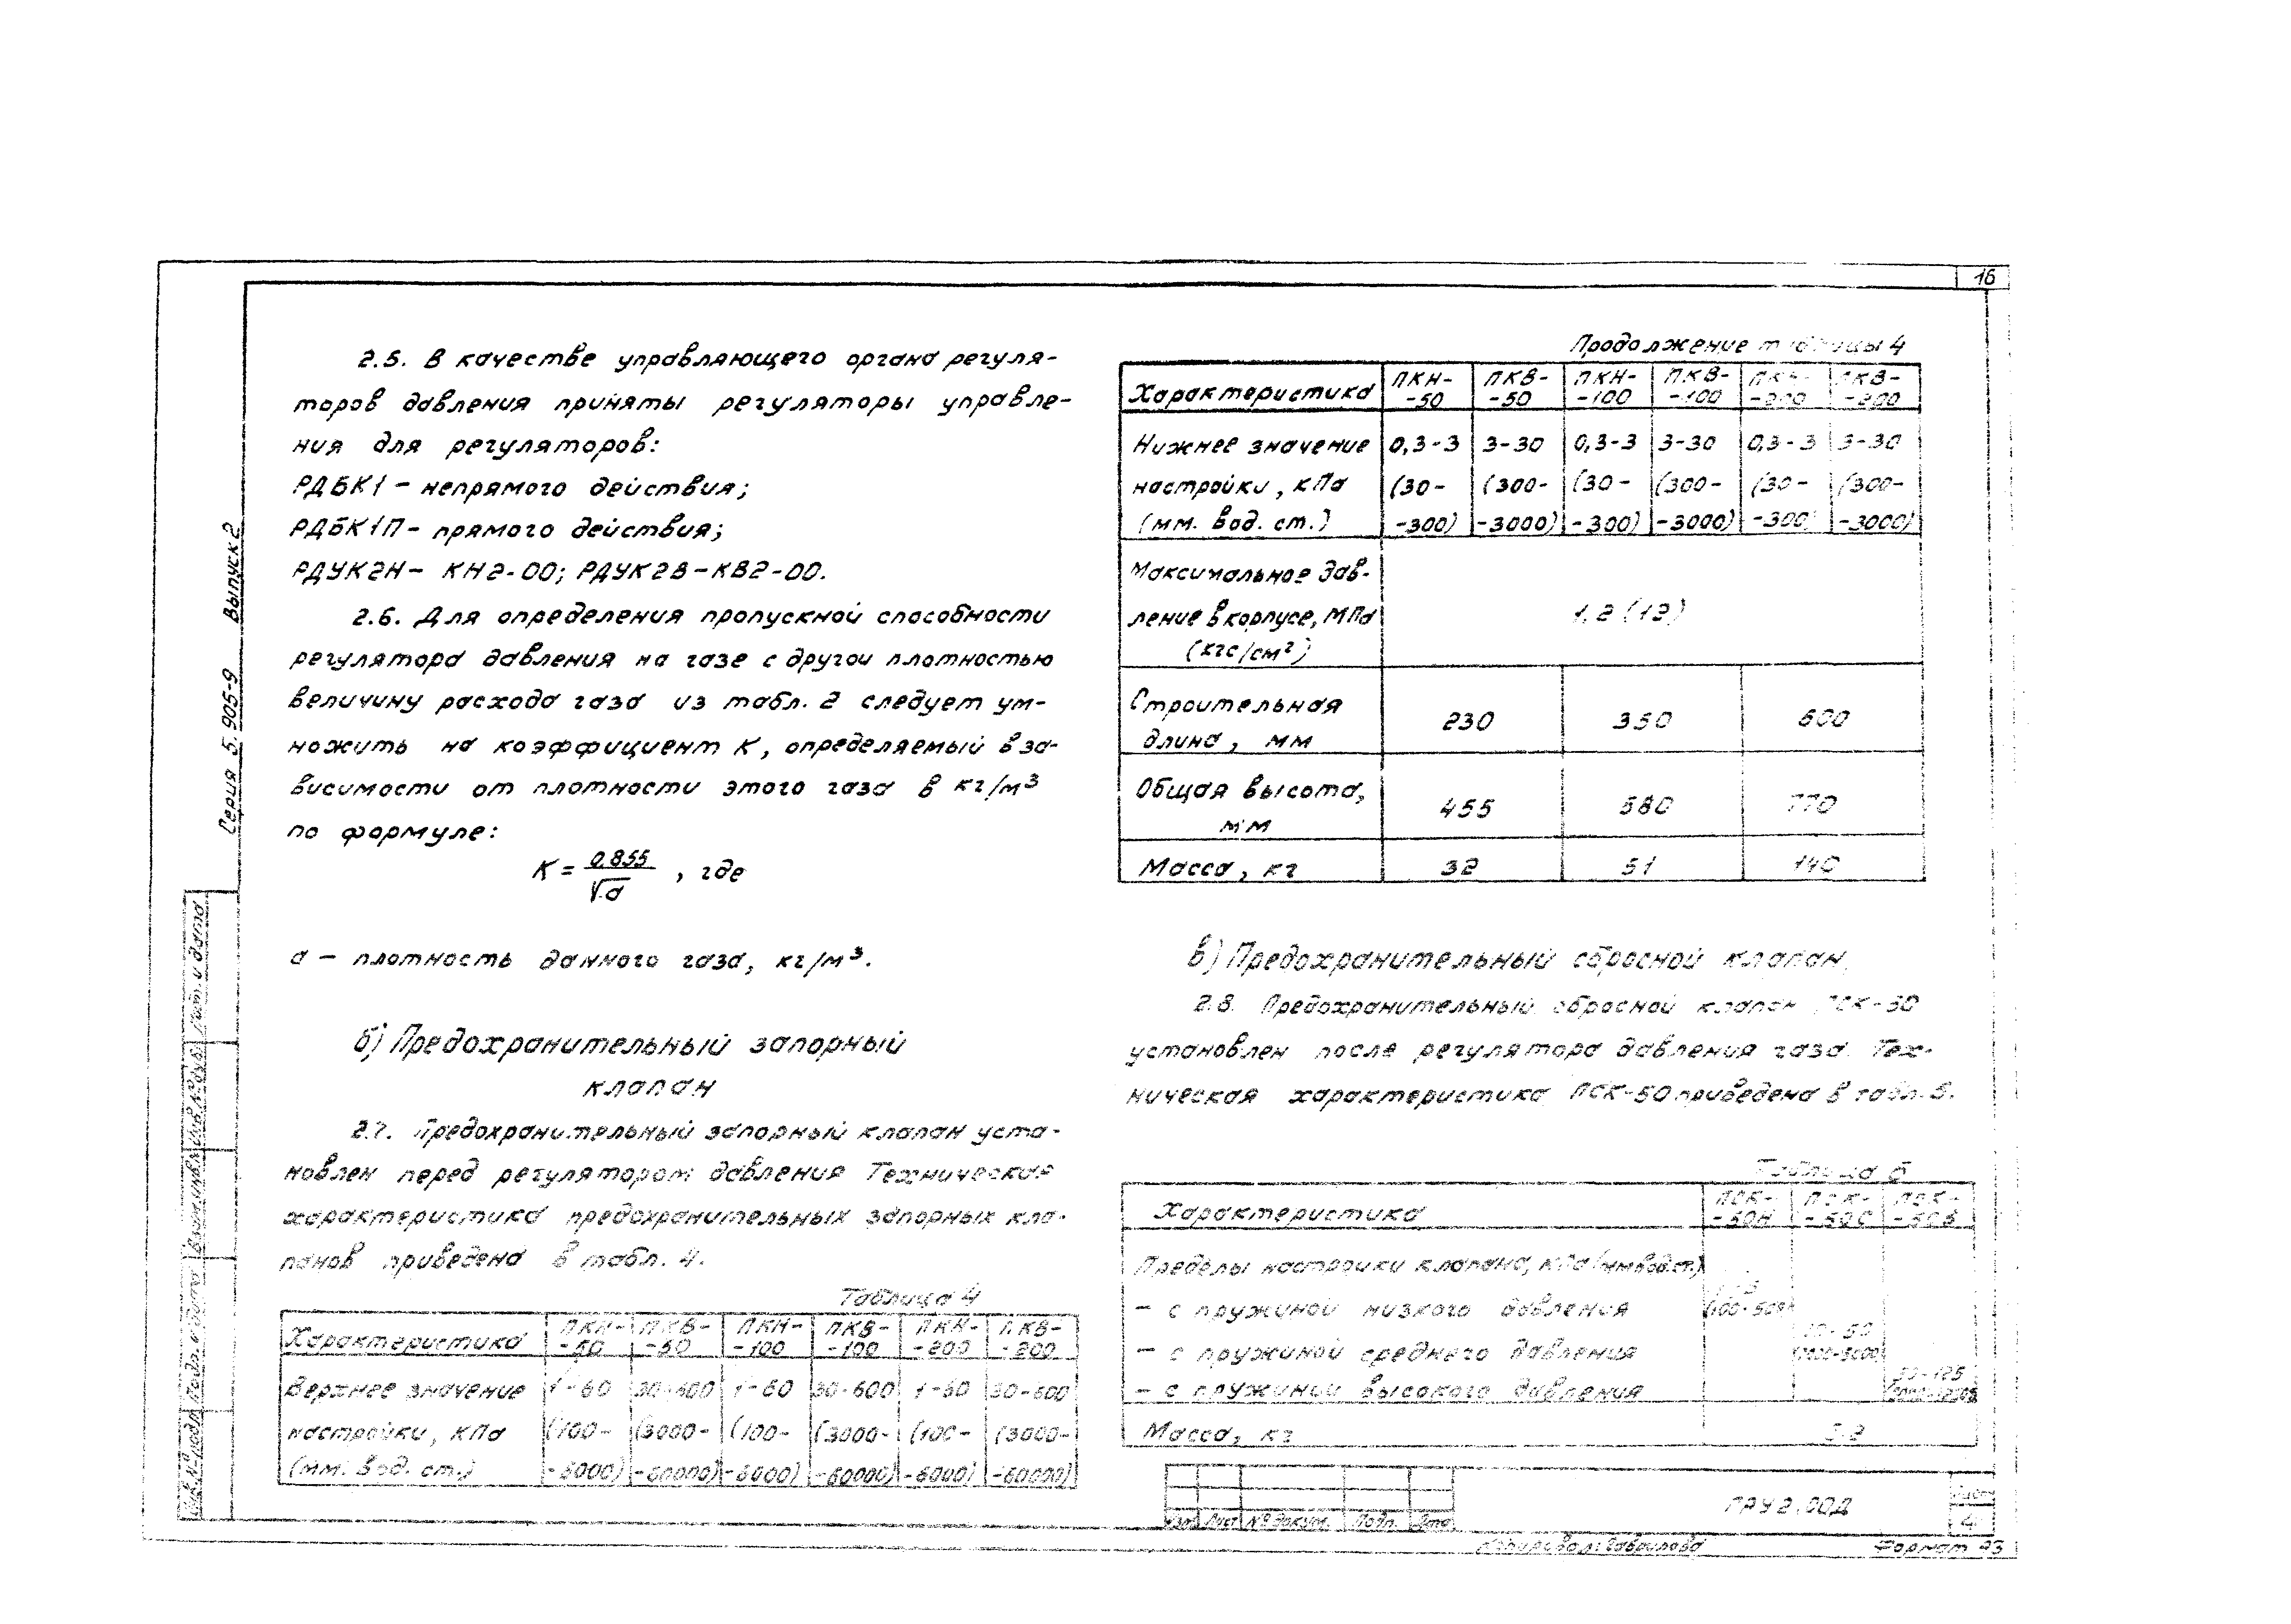 16
2.5. В качестве управляющего органа регуля-
торов давления приняты регуляторы управле-
ния для регуляторов:
РДБК1 – непрямого действия;
РДБК1П – прямого действия;
РДУК2Н – КН2-00; РДУК2В – КВ2-00.
2.6. Для определения пропускной способности
регулятора давления на газе с другой плотностью
величину расхода газа из табл. 2 следует ум-
ножить на коэффициент К, определяемый в за-
висимости от плотности этого газа в кг/м³
по формуле:
К = 0,855 / √d , где
d – плотность данного газа, кг/м³.
б) Предохранительный запорный
клапан
2.7. Предохранительный запорный клапан уста-
новлен перед регулятором давления Техническая
характеристика предохранительных запорных кла-
панов приведена в табл. 4.
Таблица 4
Характеристика ПКН- -50 ПКВ- -50 ПКН- -100 ПКВ- -100 ПКН- -200 ПКВ- -200
Верхнее значение 1-60 30-600 1-60 30-600 1-60 30-600
настройки, кПа (100- (3000- (100- (3000- (100- (3000-
(мм. вод. ст.) -6000) -60000) -6000) -60000) -6000) -60000)
Продолжение таблицы 4
Характеристика ПКН- -50 ПКВ- -50 ПКН- -100 ПКВ- -100 ПКН- -200 ПКВ- -200
Нижнее значение 0,3-3 3-30 0,3-3 3-30 0,3-3 3-30
настройки, кПа (30- (300- (30- (300- (30- (300-
(мм. вод. ст.) -300) -3000) -300) -3000) -300) -3000)
Максимальное дав-
ление в корпусе, МПа 1,2 (12)
(кгс/см²)
Строительная
длина, мм 230 350 600
Общая высота, 455 580 770
мм
Масса, кг 32 51 140
в) Предохранительный сбросной клапан
2.8. Предохранительный сбросной клапан ПСК-50
установлен после регулятора давления газа. Тех-
ническая характеристика ПСК-50 приведена в табл. 5.
Таблица 5
Характеристика ПСК- -50Н ПСК- -50С ПСК- -50В
Пределы настройки клапана, кПа (мм вод.ст.)
– с пружиной низкого давления
– с пружиной среднего давления
– с пружиной высокого давления
Масса, кг
Изм Лист № докум. Подп. Дата
ГРУ2.00Д
Лист
4
Копировал: Гаврилова
Формат А3
Серия 5.905-9 Выпуск 2
Подп. и дата
Инв. № дубл.
Взам. инв. №
Подп. и дата
Инв. № подл.